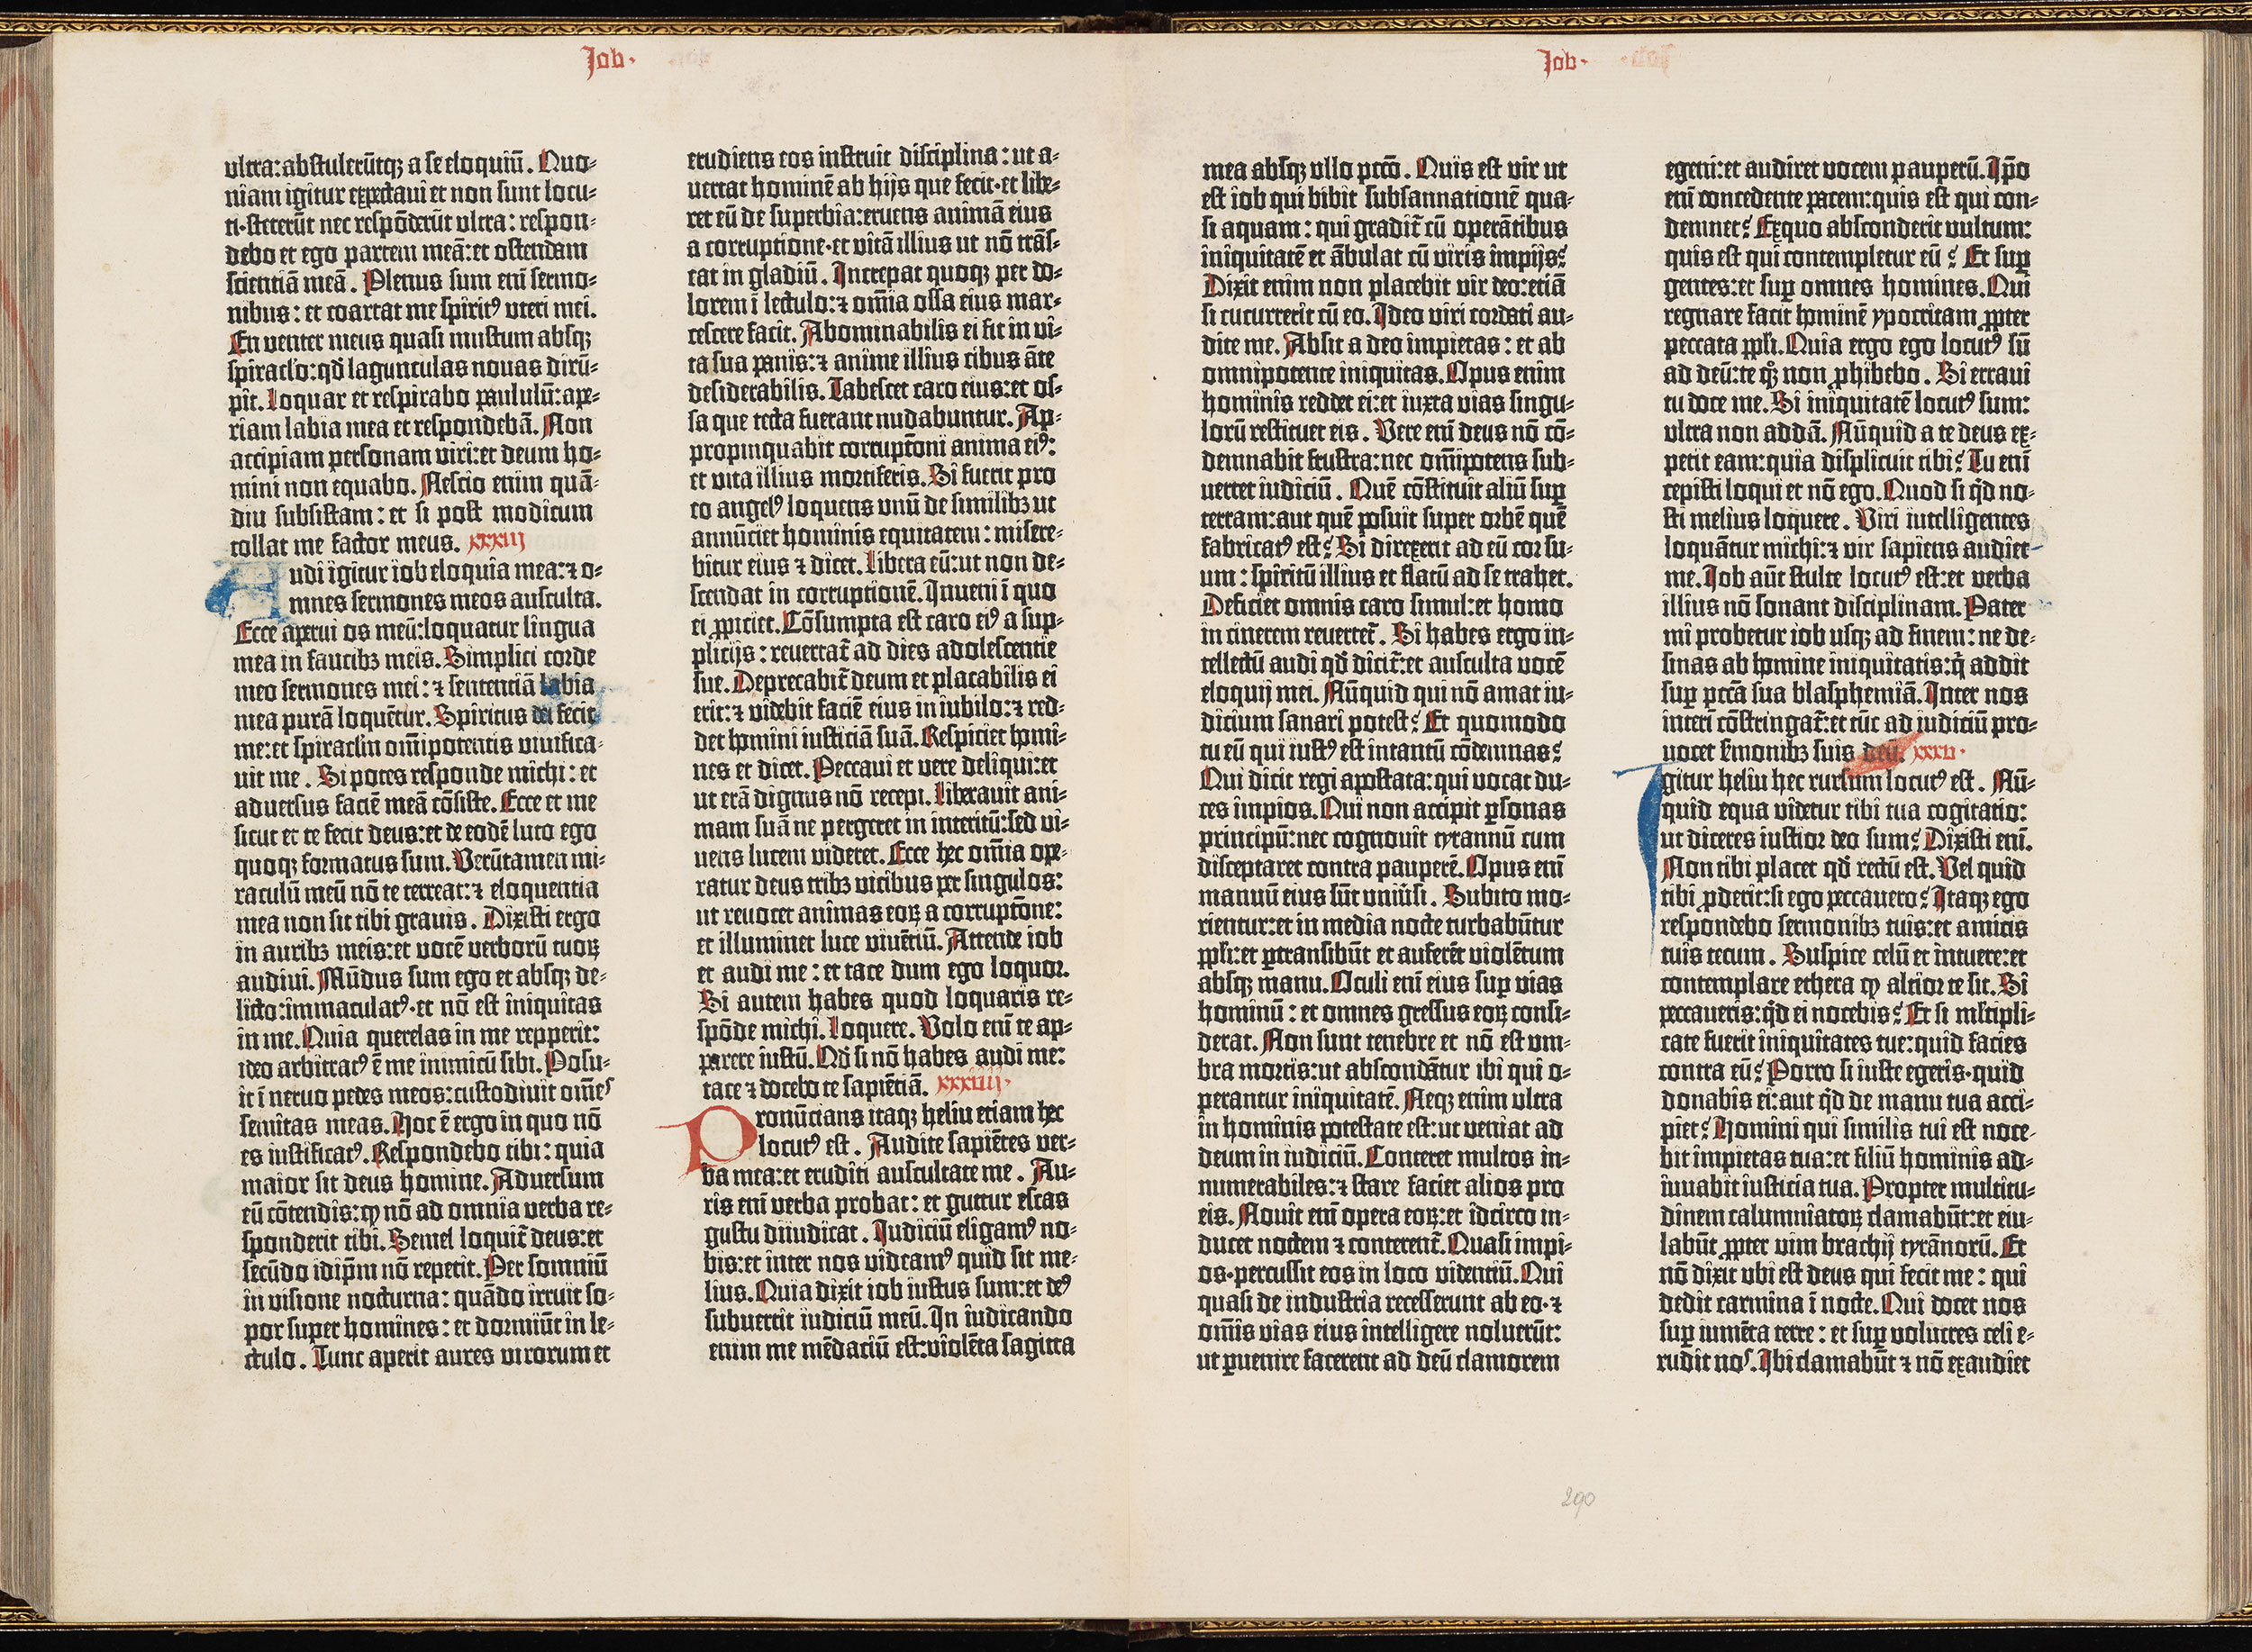 Job.
ultra: abstulerūtq̨ a se eloquiū. Quo-
niam igitur expectavi et non sunt locu-
ti. steterūt nec respōderūt ultra: respon-
debo et ego partem meā: et ostendam
scientiā meā. Plenus sum eni sermo-
nibus: et coartat me spiritꝰ uteri mei.
En venter meus quasi mustum absq̨
spiraclo: qđ lagunculas novas dirū-
pit. Loquar et respirabo paululū: ape-
riam labia mea et respondebā. Non
accipiam personam viri: et deum ho-
mini non equabo. Nescio enim quā-
diu subsistam: et si post modicum
tollat me factor meus. xxxiij
Audi igitur iob eloquia mea: ⁊ o-
mnes sermones meos ausculta.
Ecce aperui os meū: loquatur lingua
mea in faucibꝫ meis. Simplici corde
meo sermones mei: ⁊ sententiā labia
mea purā loquētur. Spiritus dei fecit
me: et spiraclm omipotentis vivifica-
vit me. Si potes responde michi: et
adversus faciē meā cōsiste. Ecce et me
sicut et te fecit deus: et de eodē luto ego
quoq̨ formatus sum. Verūtamen mi-
raculū meū nō te terreat: ⁊ eloquentia
mea non sit tibi gravis. Dixisti ergo
in auribꝫ meis: et vocē verborū tuoꝝ
audivi. Mūdus sum ego et absq̨ de-
licto: immaculatꝰ. et nō est iniquitas
in me. Quia querelas in me repperit:
ideo arbitratꝰ ē me inimicū sibi. Posu-
it ī nervo pedes meos: custodivit omēs
semitas meas. Hoc ē ergo in quo nō
es iustificatꝰ. Respondebo tibi: quia
maior sit deus homine. Adversum
eū cōtendis: ꝙ nō ad omnia verba re-
sponderit tibi. Semel loquit̄ deus: et
secūdo idip̄m nō repetit. Per somniū
in visione nocturna: quādo irruit so-
por super homines: et dormiūt in le-
ctulo. Tunc aperit aures virorum et
erudiens eos instruit disciplina: ut a-
vertat hominē ab hijs que fecit. et libe-
ret eū de superbia: eruens animā eius
a corruptione. et vitā illius ut nō trās-
eat in gladiū. Increpat quoq̨ per do-
lorem ī lectulo: ⁊ om̄ia ossa eius mar-
cescere facit. Abominabilis ei fit in vi-
ta sua panis: ⁊ anime illius cibus āte
desiderabilis. Tabescet caro eius: et os-
sa que tecta fuerant nudabuntur. Ap-
propinquabit corruptōni anima eiꝰ:
et vita illius mortiferis. Si fuerit pro
eo angelꝰ loquens unū de similibꝫ ut
annūciet hominis equitatem: misere-
bitur eius ⁊ dicet. Libera eū: ut non de-
scendat in corruptionē. Inveni ī quo
ei ꝓpiciet. Cōsumpta est caro eiꝰ a sup-
plicijs: revertat̄ ad dies adolescentie
sue. Deprecabit̄ deum et placabilis ei
erit: ⁊ videbit faciē eius in iubilo: ⁊ red-
det homini iusticiā suā. Respiciet homi-
nes et dicet. Peccavi et vere deliqui: et
ut erā dignus nō recepi. Liberavit ani-
mam suā ne pergeret in interitū: sed vi-
vens lucem videret. Ecce hec om̄ia ope-
ratur deus tribꝫ vicibus per singulos:
ut revocet animas eoꝝ a corruptōne:
et illuminet luce vivētiū. Attende iob
et audi me: et tace dum ego loquor.
Si autem habes quod loquaris re-
spōde michi. Loquere. Volo eni te ap-
parere iustū. Qđ si nō habes audi me:
tace ⁊ docebo te sapiētiā. xxxiiij.
Pronūcians itaq̨ heliu etiam hec
locutꝰ est. Audite sapiētes ver-
ba mea: et eruditi auscultate me. Au-
ris eni verba probat: et guttur escas
gustu diiudicat. Judiciū eligamꝰ no-
bis: et inter nos videamꝰ quid sit me-
lius. Quia dixit iob iustus sum: et deꝰ
subvertit iudiciū meū. In iudicando
enim me mēdaciū est: violēta sagitta
Job.
mea absq̨ ullo pctō. Quis est vir ut
est iob qui bibit subsannationē qua-
si aquam: qui gradit̄ cū operātibus
iniquitatē et ābulat cū viris impijs?
Dixit enim non placebit vir deo: etiā
si cucurrerit cū eo. Ideo viri cordati au-
dite me. Absit a deo impietas: et ab
omnipotente iniquitas. Opus enim
hominis reddet ei: et iuxta vias singu-
lorū restituet eis. Vere eni deus nō cō-
demnabit frustra: nec omīpotens sub-
vertet iudiciū. Quē cōstituit aliū suꝑ
terram: aut quē posuit super orbē quē
fabricatꝰ est? Si direxerit ad eū cor su-
um: spiritū illius et flatū ad se trahet.
Deficiet omnis caro simul: et homo
in cinerem revertet̄. Si habes ergo in-
tellectū audi qđ dicit̄: et ausculta vocē
eloquij mei. Nūquid qui nō amat iu-
dicium sanari potest? Et quomodo
tu eū qui iustꝰ est intantū cōdemnas?
Qui dicit regi apostata: qui vocat du-
ces impios. Qui non accipit ꝑsonas
principū: nec cognovit tyrannū cum
disceptaret contra pauperē. Opus eni
manuū eius sūt univ̄si. Subito mo-
rientur: et in media nocte turbabūtur
ppli: et ꝑtransibūt et auferēt violētum
absq̨ manu. Oculi eni eius suꝑ vias
hominū: et omnes gressus eoꝝ consi-
derat. Non sunt tenebre et nō est um-
bra mortis: ut abscondātur ibi qui o-
perantur iniquitatē. Neq̨ enim ultra
in hominis potestate est: ut veniat ad
deum in iudiciū. Conteret multos in-
numerabiles: ⁊ stare faciet alios pro
eis. Novit eni opera eoꝝ: et idcirco in-
ducet noctem ⁊ conterent̄. Quasi impi-
os. percussit eos in loco videntiū. Qui
quasi de industria recesserunt ab eo. ⁊
om̄is vias eius intelligere noluerūt:
ut ꝑvenire facerent ad deū clamorem
egeni: et audiret vocem pauperū. Ip̄o
eni concedente pacem: quis est qui con-
demnet? Exquo absconderit vultum:
quis est qui contempletur eū? Et suꝑ
gentes: et suꝑ omnes homines. Qui
regnare facit hominē ypocritam ꝓpter
peccata ppli. Quia ergo ego locutꝰ sū
ad deū: te qꝫ non ꝓhibebo. Si erravi
tu doce me. Si iniquitatē locutꝰ sum:
ultra non addā. Nūquid a te deus ex-
petit eam: quia displicuit tibi? Tu eni
cepisti loqui et nō ego. Quod si qđ no-
sti melius loquere. Viri intelligentes
loquātur michi: ⁊ vir sapiens audiet
me. Job aūt stulte locutꝰ est: et verba
illius nō sonant disciplinam. Pater
mi probetur iob usq̨ ad finem: ne de-
sinas ab homine iniquitatis: q̄ addit
suꝑ pctā sua blasphemiā. Inter nos
interī cōstringat̄: et tūc ad iudiciū pro-
vocet s̄monibꝫ suis deū. xxxv.
Igitur heliu hec rursum locutꝰ est. Nū-
quid equa videtur tibi tua cogitatio:
ut diceres iustior deo sum? Dixisti eni.
Non tibi placet qđ rectū est. Vel quid
tibi ꝓderit: si ego peccavero? Itaq̨ ego
respondebo sermonibꝫ tuis: et amicis
tuis tecum. Suspice celū et intuere: et
contemplare ethera ꝙ altior te sit. Si
peccaveris: qđ ei nocebis? Et si mltipli-
cate fuerit iniquitates tue: quid facies
contra eū? Porro si iuste egeris. quid
donabis ei: aut qđ de manu tua acci-
piet? Homini qui similis tui est noce-
bit impietas tua: et filiū hominis ad-
iuvabit iusticia tua. Propter multitu-
dinem calumniatoꝝ clamabūt: et eiu-
labūt ꝓpter vim brachij tyrānorū. Et
nō dixit ubi est deus qui fecit me: qui
dedit carmina ī nocte. Qui docet nos
suꝑ iumēta terre: et suꝑ volucres celi e-
rudit nos. Ibi clamabūt ⁊ nō exaudiet
290